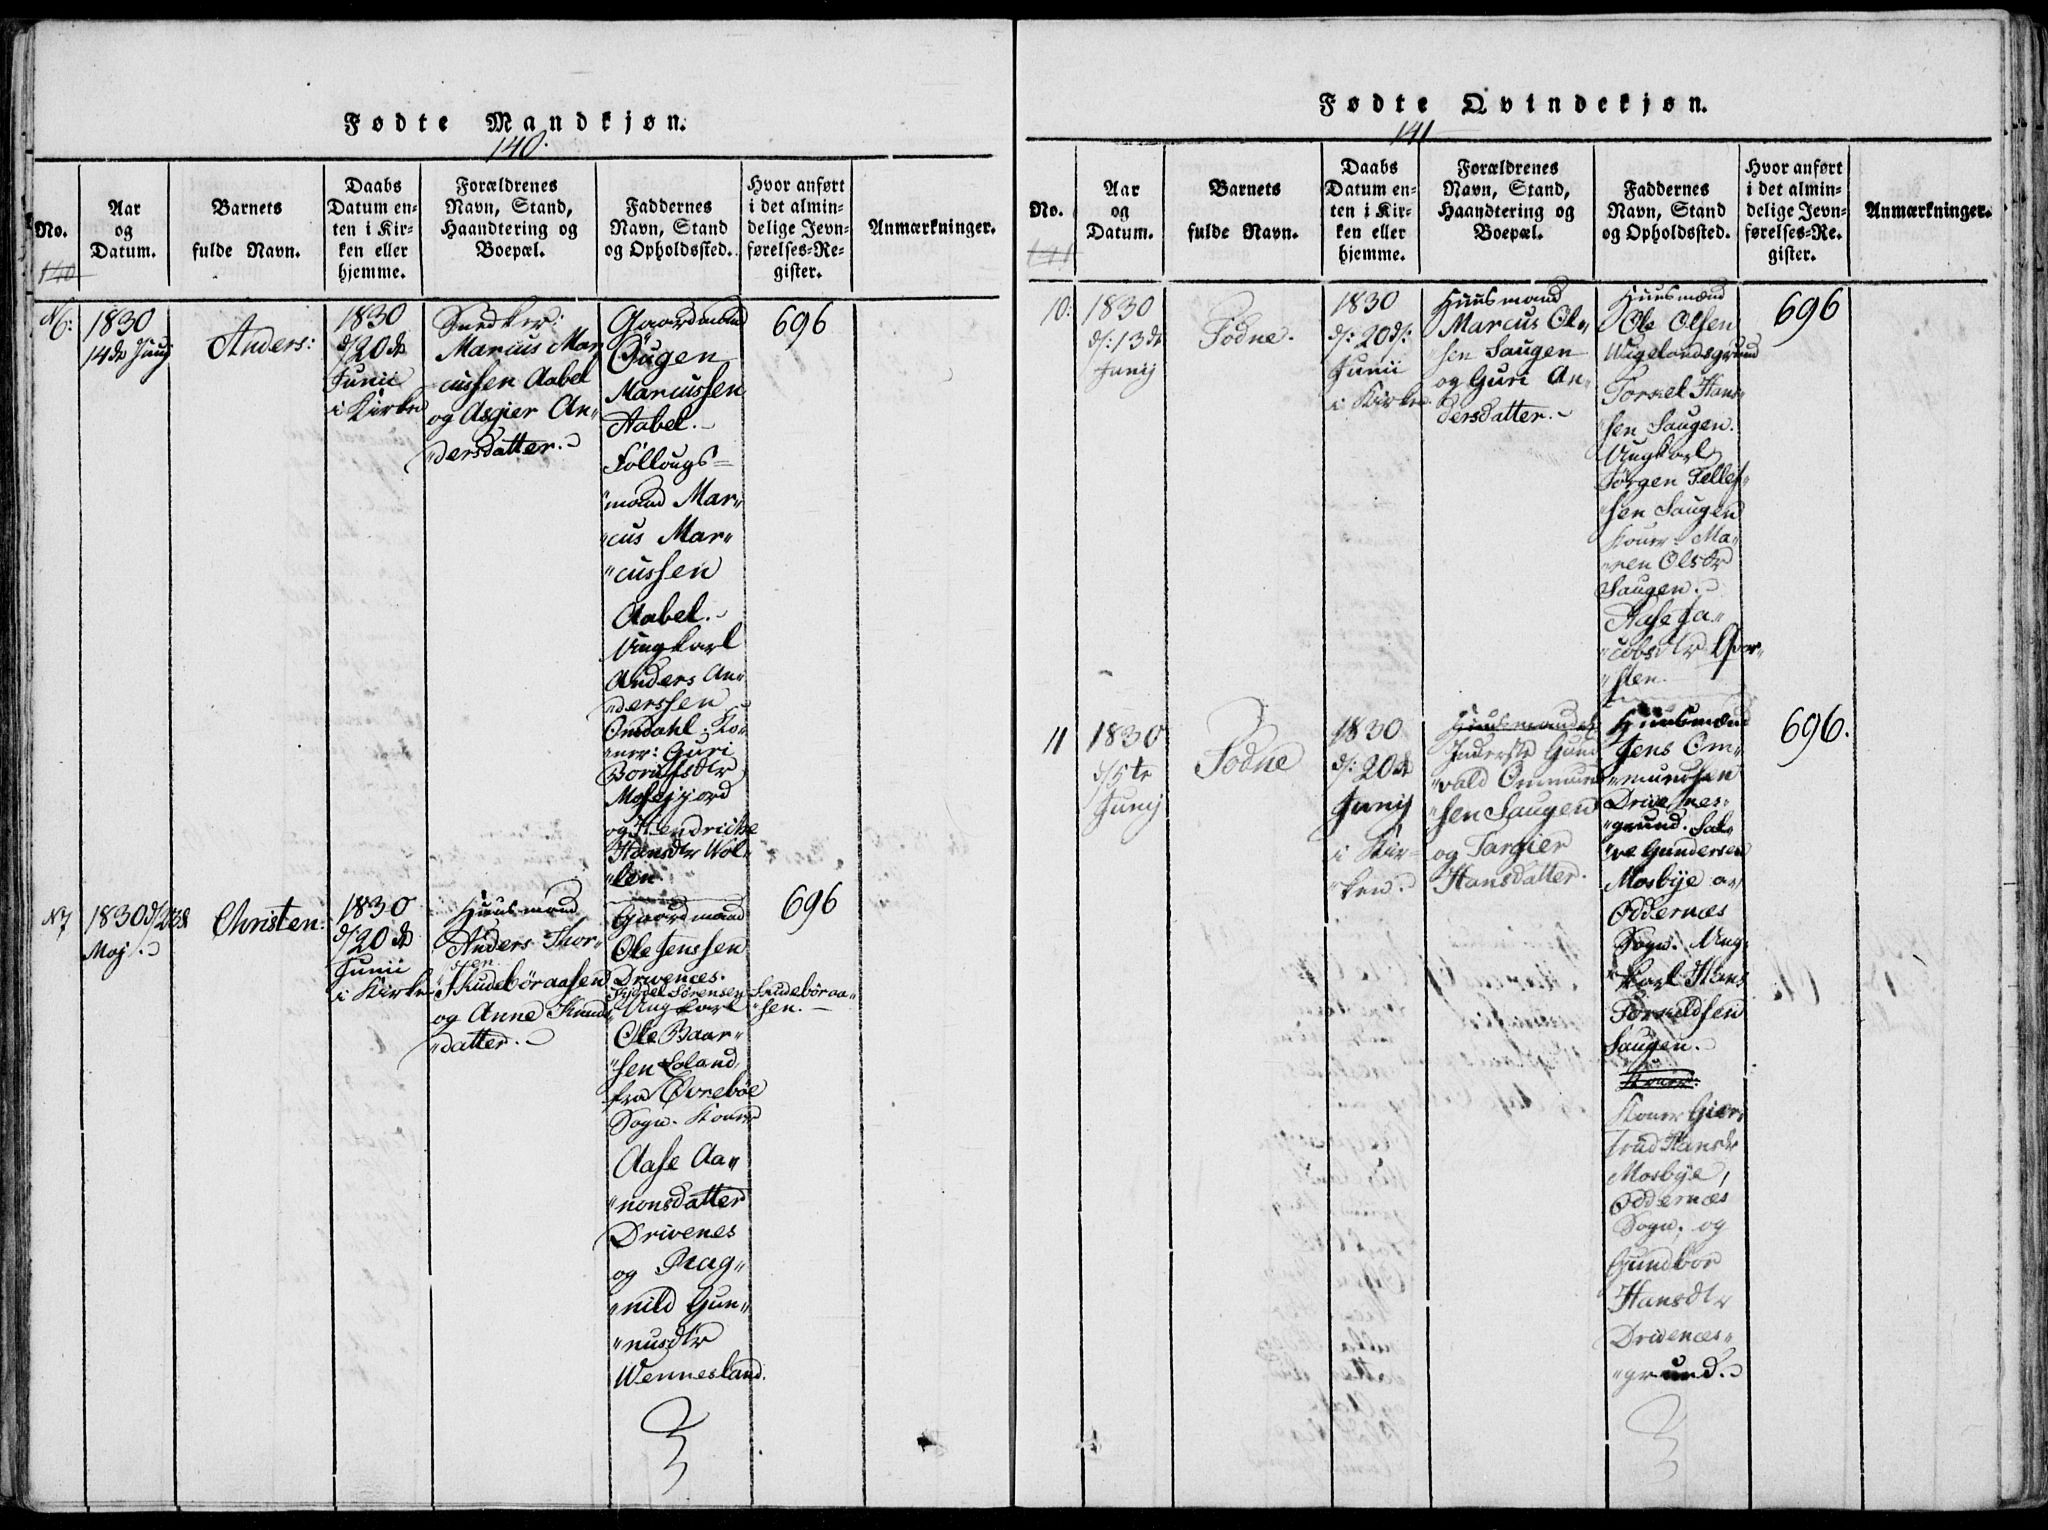 Fødte Mandkjøn.
140.
No.
140
Aar
og
Datum.
Barnets
fulde Navn.
Daabs
Datum en-
ten i Kir-
ken eller
hjemme.
Forældrenes
Navn, Stand,
Haandtering og
Boepæl.
Faddernes
Navn, Stand
og Opholdssted.
Hvor anført
i det almin-
delige Jevn-
førelses-Re-
gister.
Anmærkninger.
N6:
1830
14de Junij
Anders:
1830
d/20de
Junii
i Kirken
Snedker:
Marcus Mar
cussen Aabel
og Asgier An„
„dersdatter.
Gaardmand
Marcussen
Aabel.
Føllougs=
„mand Mar„
„cus Mar„
„cussen
Aabel.
Ungkarl
Anders An„
„derssen
Omdahl. Ko„
„ner: Guri
Mosefjord
og Hendrickke
Hansdtr Wol„
„len.
N7
1830 d/23de
Maj.
Christen:
1830
d/20de
Junii
i Kirken
Huusmand
Anders Thor„
sen
Skudebøraasen
og Anne Knuds
„datter.
Gaardmand
Ole Jenssen
Drivenes.
Sørensen Skudebøraa„
„sen.
Ungkarl
Ole Baar„
„sen Eoland
fra Øvrebøe
Sogn. Koner
Aase Aa„
„nonsdatter
Drivenes
og Rag„
„nild Gun„
„nusdtr
Wennesland.
696
696
Fødte Qvindekjøn.
141
No.
141
Aar
og
Datum.
Barnets
fulde Navn.
Daabs
Datum en-
ten i Kir-
ken eller
hjemme.
Forældrenes
Navn, Stand,
Haandtering og
Boepæl.
Faddernes
Navn, Stand
og Opholdssted.
Hvor anført
i det almin-
delige Jevn-
førelses-Re-
gister.
Anmærkninger.
10:
1830
d/:13de
Junij
Todne.
1830
d/:20d/:
Junii
i Kirken.
Huusmand
Marcus Ol„
„sen Saugen
og Guri An„
dersdatter.
Huusmænd
Ole Olsen
Wigelandsgrund
Torkel Hans„
„sen Saugen.
Ungkarl
Jørgen Tellef„
„sen Saugen
Koner: Ma„
„ren Olsdtr
Saugen.
Aase Ja„
„cobsdtr
696
11
1830
d/5te
Junij
Todne
1830
d/:20de
Junij
i Kir„
„ken.
Inderste Gun
vald Ommund
„sen Saugen
og Targier
Hansdatter.
Huusmænd
Jens Om„
„mundsen
Drivenes„
„grund. Sal„
„ve Gundersen
Mosbye
Oddernæs
Sogn. Ung„
karl Hans
Torkeldsen
Saugen.
Koner:
Koner Gier„
trud Hansdtr
Mosbye,
Oddernæs
Sogn, og
Gundbor
Hansdtr
Drivenæs„
„grund.
696.